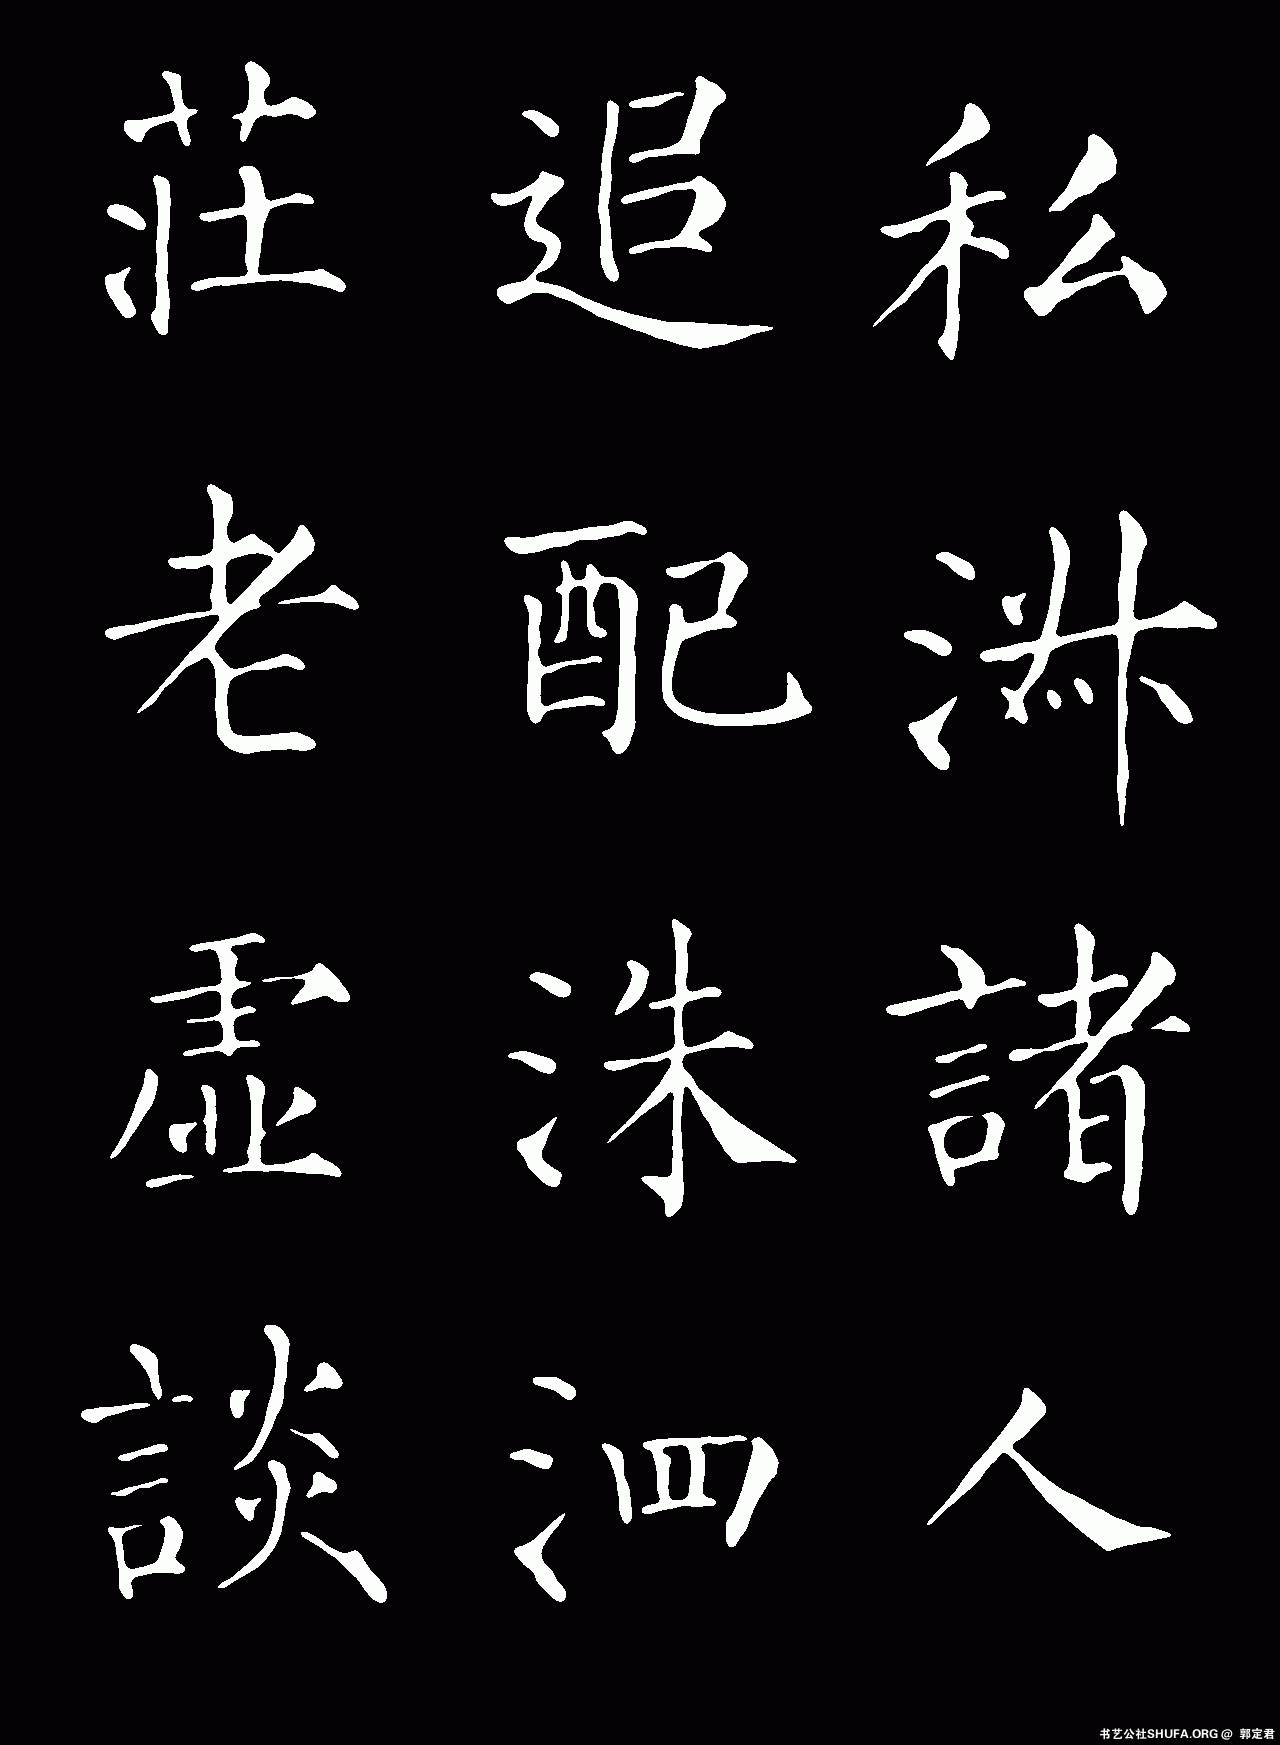 私淑諸人
追配洙泗
莊老虛談
书艺公社SHUFA.ORG @ 郭定君